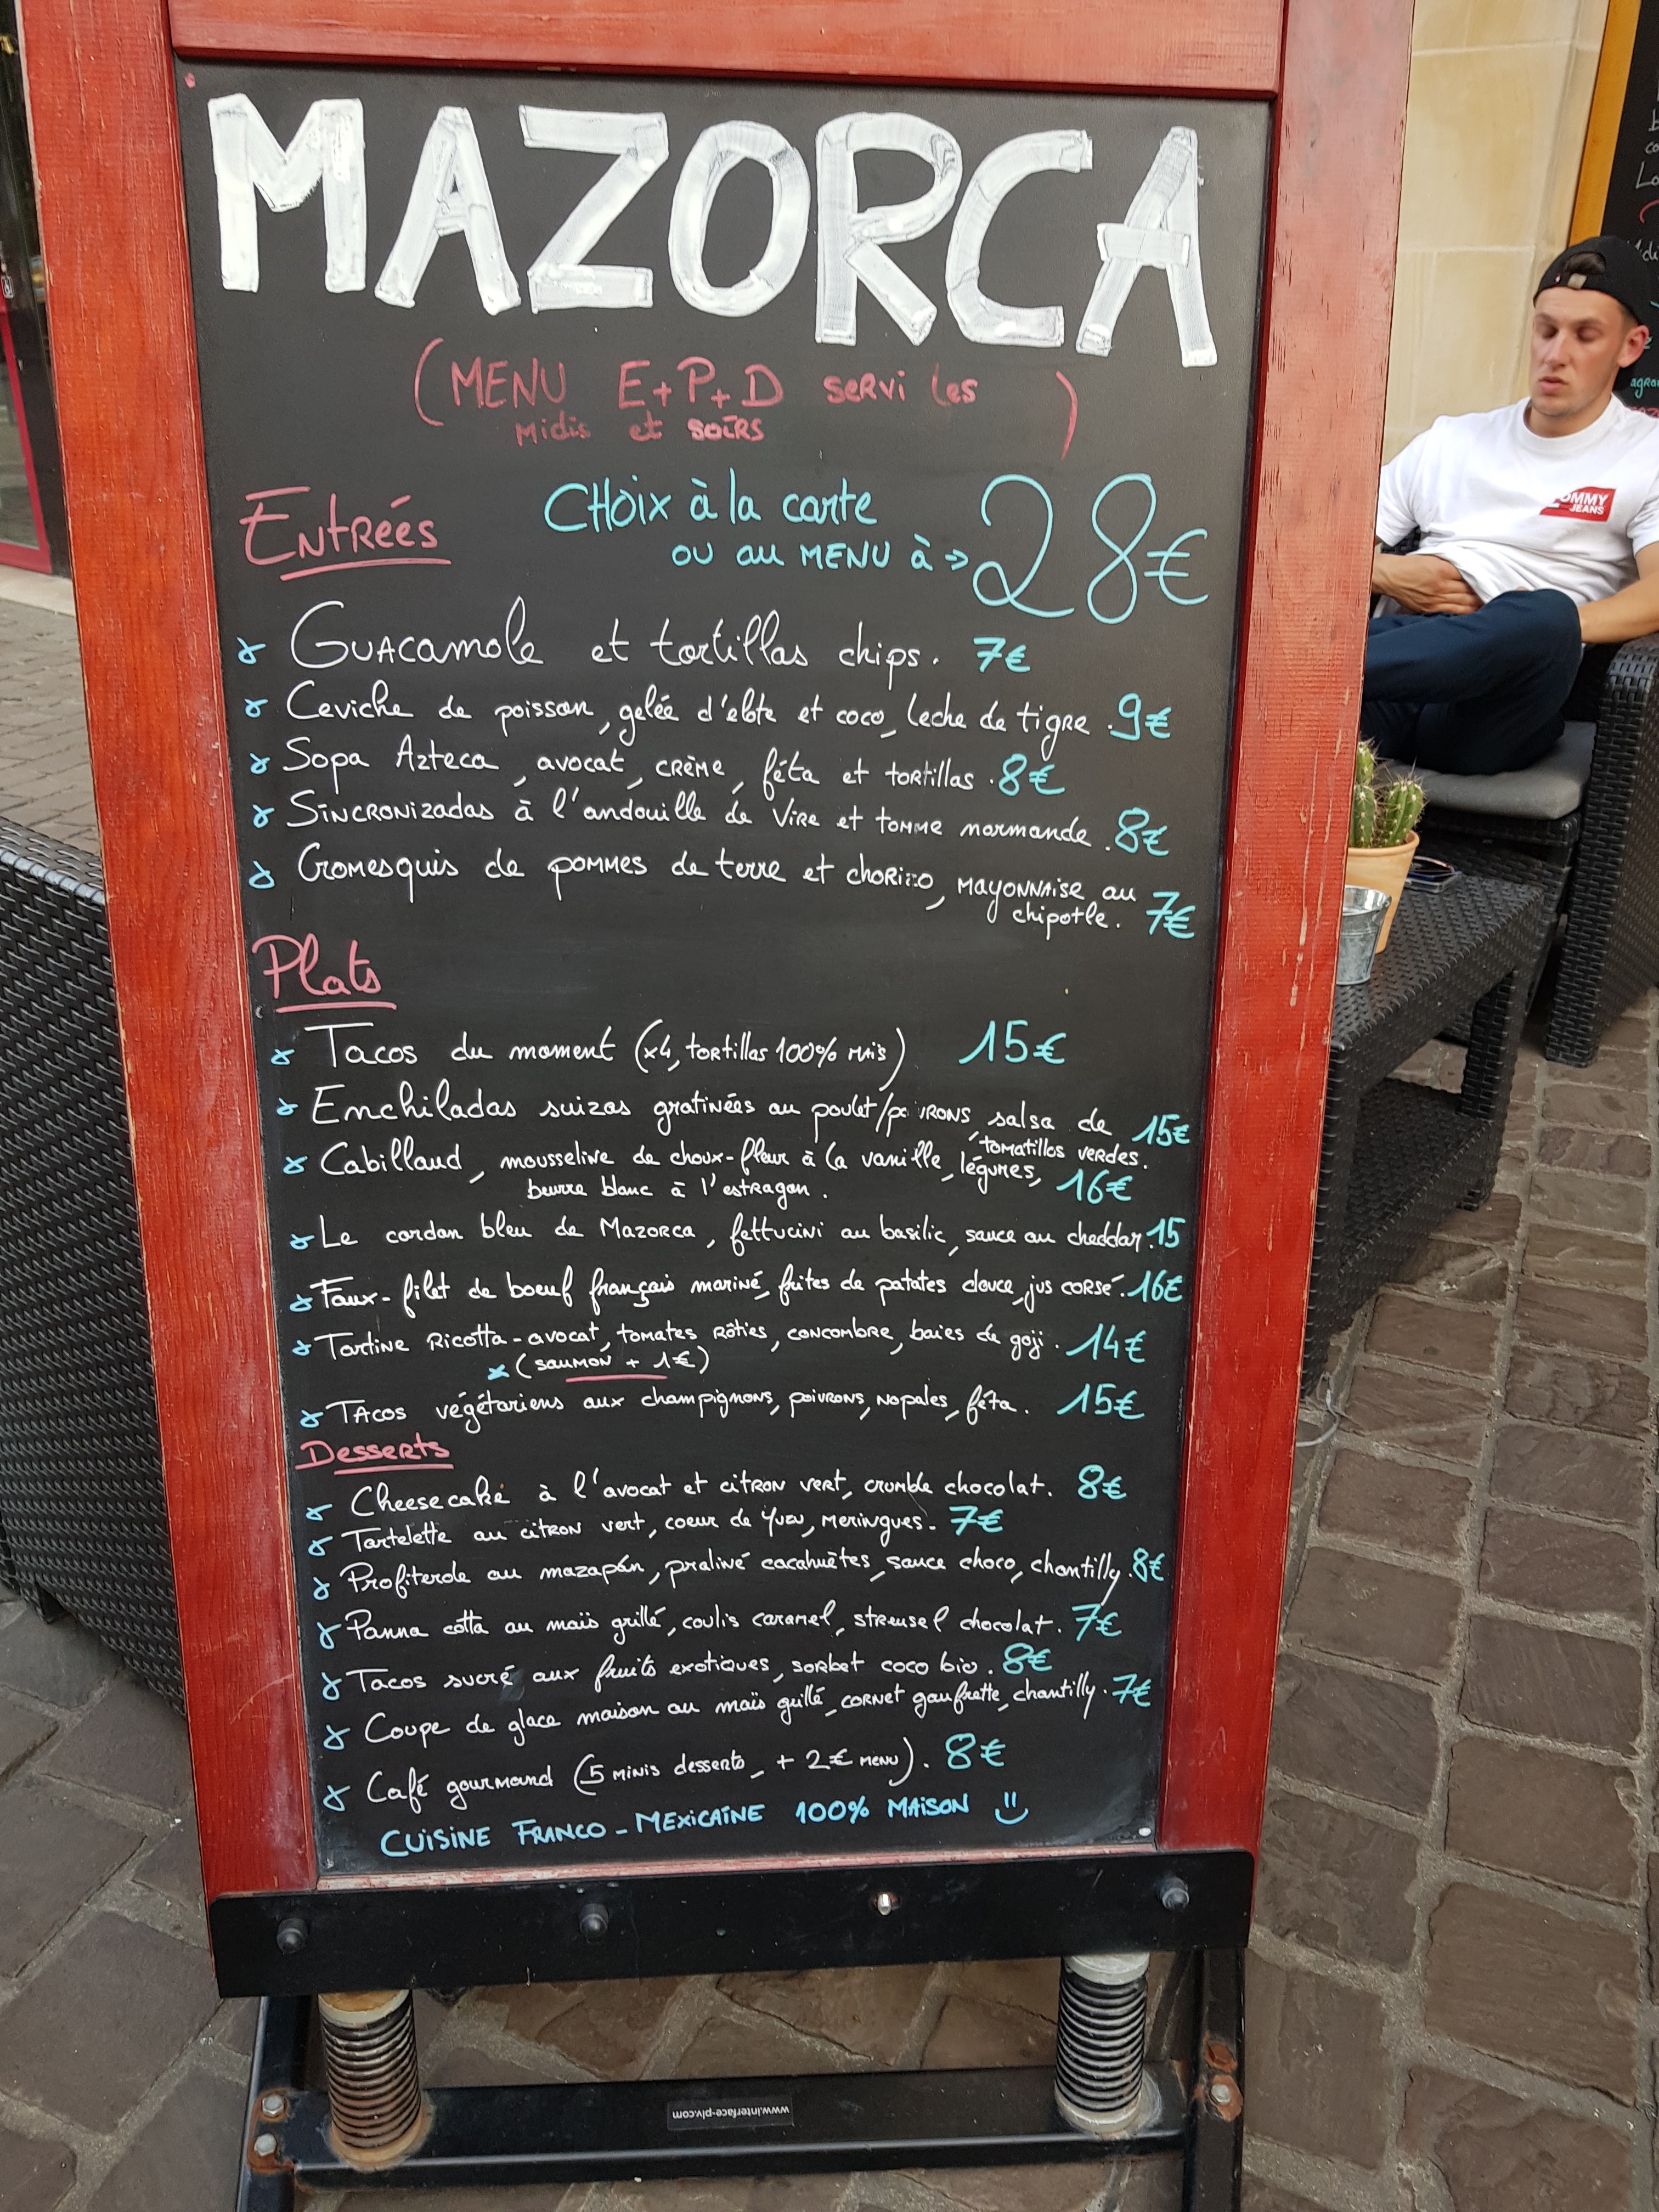 MAZORCA
(MENU E+P+D servi les
midis et soirs )
Entrées
CHOIX à la carte
ou au MENU à → 28€
Guacamole et tortillas chips. 7€
Ceviche de poisson, gelée d'elote et coco, leche de tigre. 9€
Sopa Azteca, avocat, crème, féta et tortillas. 8€
Sincronizadas à l'andouille de Vire et tomme normande. 8€
Cromesquis de pommes de terre et chorizo, mayonnaise au
chipotle. 7€
Plats
Tacos du moment (x4, tortillas 100% maïs) 15€
Enchiladas suizas gratinées au poulet/poivrons, salsa de
tomatillos verdes. 15€
Cabillaud, mousseline de choux-fleur à la vanille, légumes,
beurre blanc à l'estragon. 16€
Le cordon bleu de Mazorca, fettucini au basilic, sauce au cheddar. 15
Faux-filet de boeuf français mariné, frites de patates douce, jus corsé. 16€
Tartine Ricotta-avocat, tomates rôties, concombre, baies de goji. 14€
* (saumon + 1€)
Tacos végétariens aux champignons, poivrons, nopales, féta. 15€
Desserts
Cheesecake à l'avocat et citron vert, crumble chocolat. 8€
Tartelette au citron vert, coeur de Yuzu, meringues. 7€
Profiterole au mazapán, praliné cacahuètes, sauce choco, chantilly. 8€
Panna cotta au maïs grillé, coulis caramel, streusel chocolat. 7€
Tacos sucré aux fruits exotiques, sorbet coco bio. 8€
Coupe de glace maison au maïs grillé, cornet gaufrette, chantilly. 7€
Café gourmand (5 minis desserts, + 2€ menu). 8€
CUISINE FRANCO-MEXICAINE 100% MAISON
www.interface-plv.com
TOMMY
JEANS